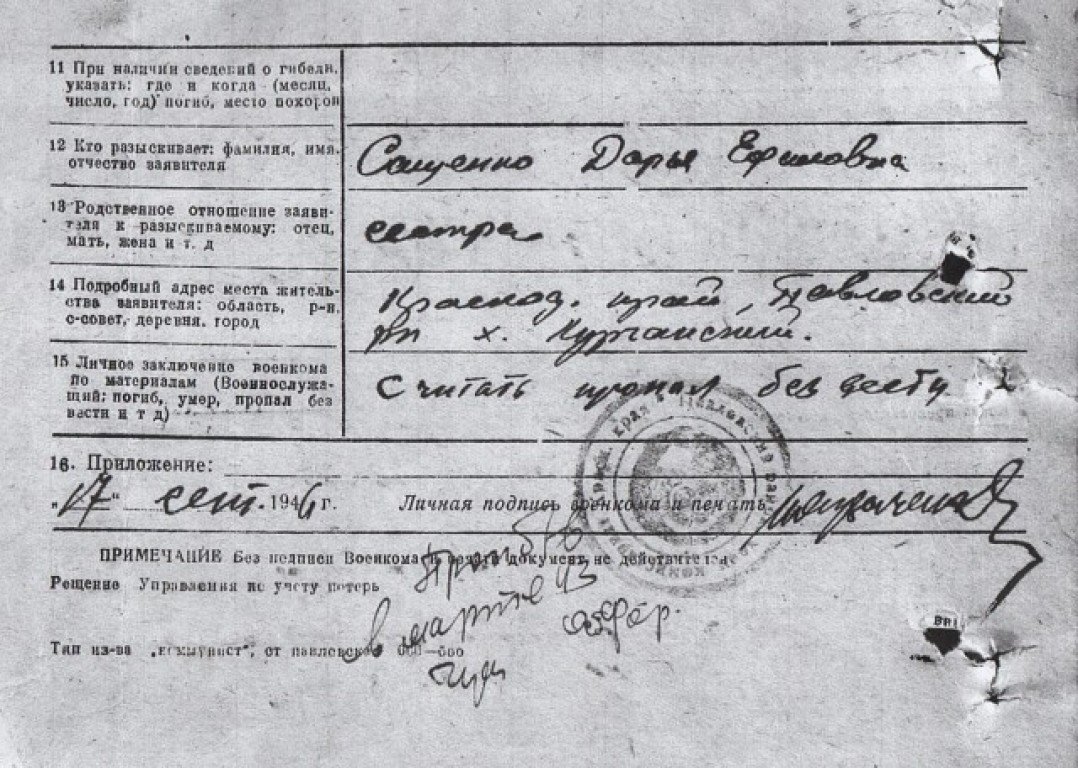 11 При наличии сведений о гибели,
указать: где и когда (месяц,
число, год) погиб, место похорон
12 Кто разыскивает: фамилия, имя,
отчество заявителя
Сащенко Дарья Ефимовна
13 Родственное отношение заяви-
теля к разыскиваемому: отец,
мать, жена и т. д
сестра
14 Подробный адрес места житель-
ства заявителя: область, р-н,
с-совет, деревня, город
Краснод. край, Павловский
рн х. Курганский.
15 Личное заключение военкома
по материалам (Военнослужа-
щий: погиб, умер, пропал без
вести и т д)
Считать пропал без вести
16. Приложение:
„17" сент. 1946 г. Личная подпись военкома и печать
ПРИМЕЧАНИЕ Без подписи Военкома и печати документ не действителен
Рещение Управления по учету потерь
в марте 43
Тип из-ва „коммунист", ст павловская